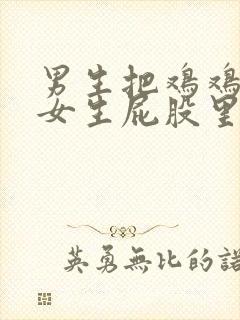 男生把鸡鸡
女生屁股里
英勇無比的諾